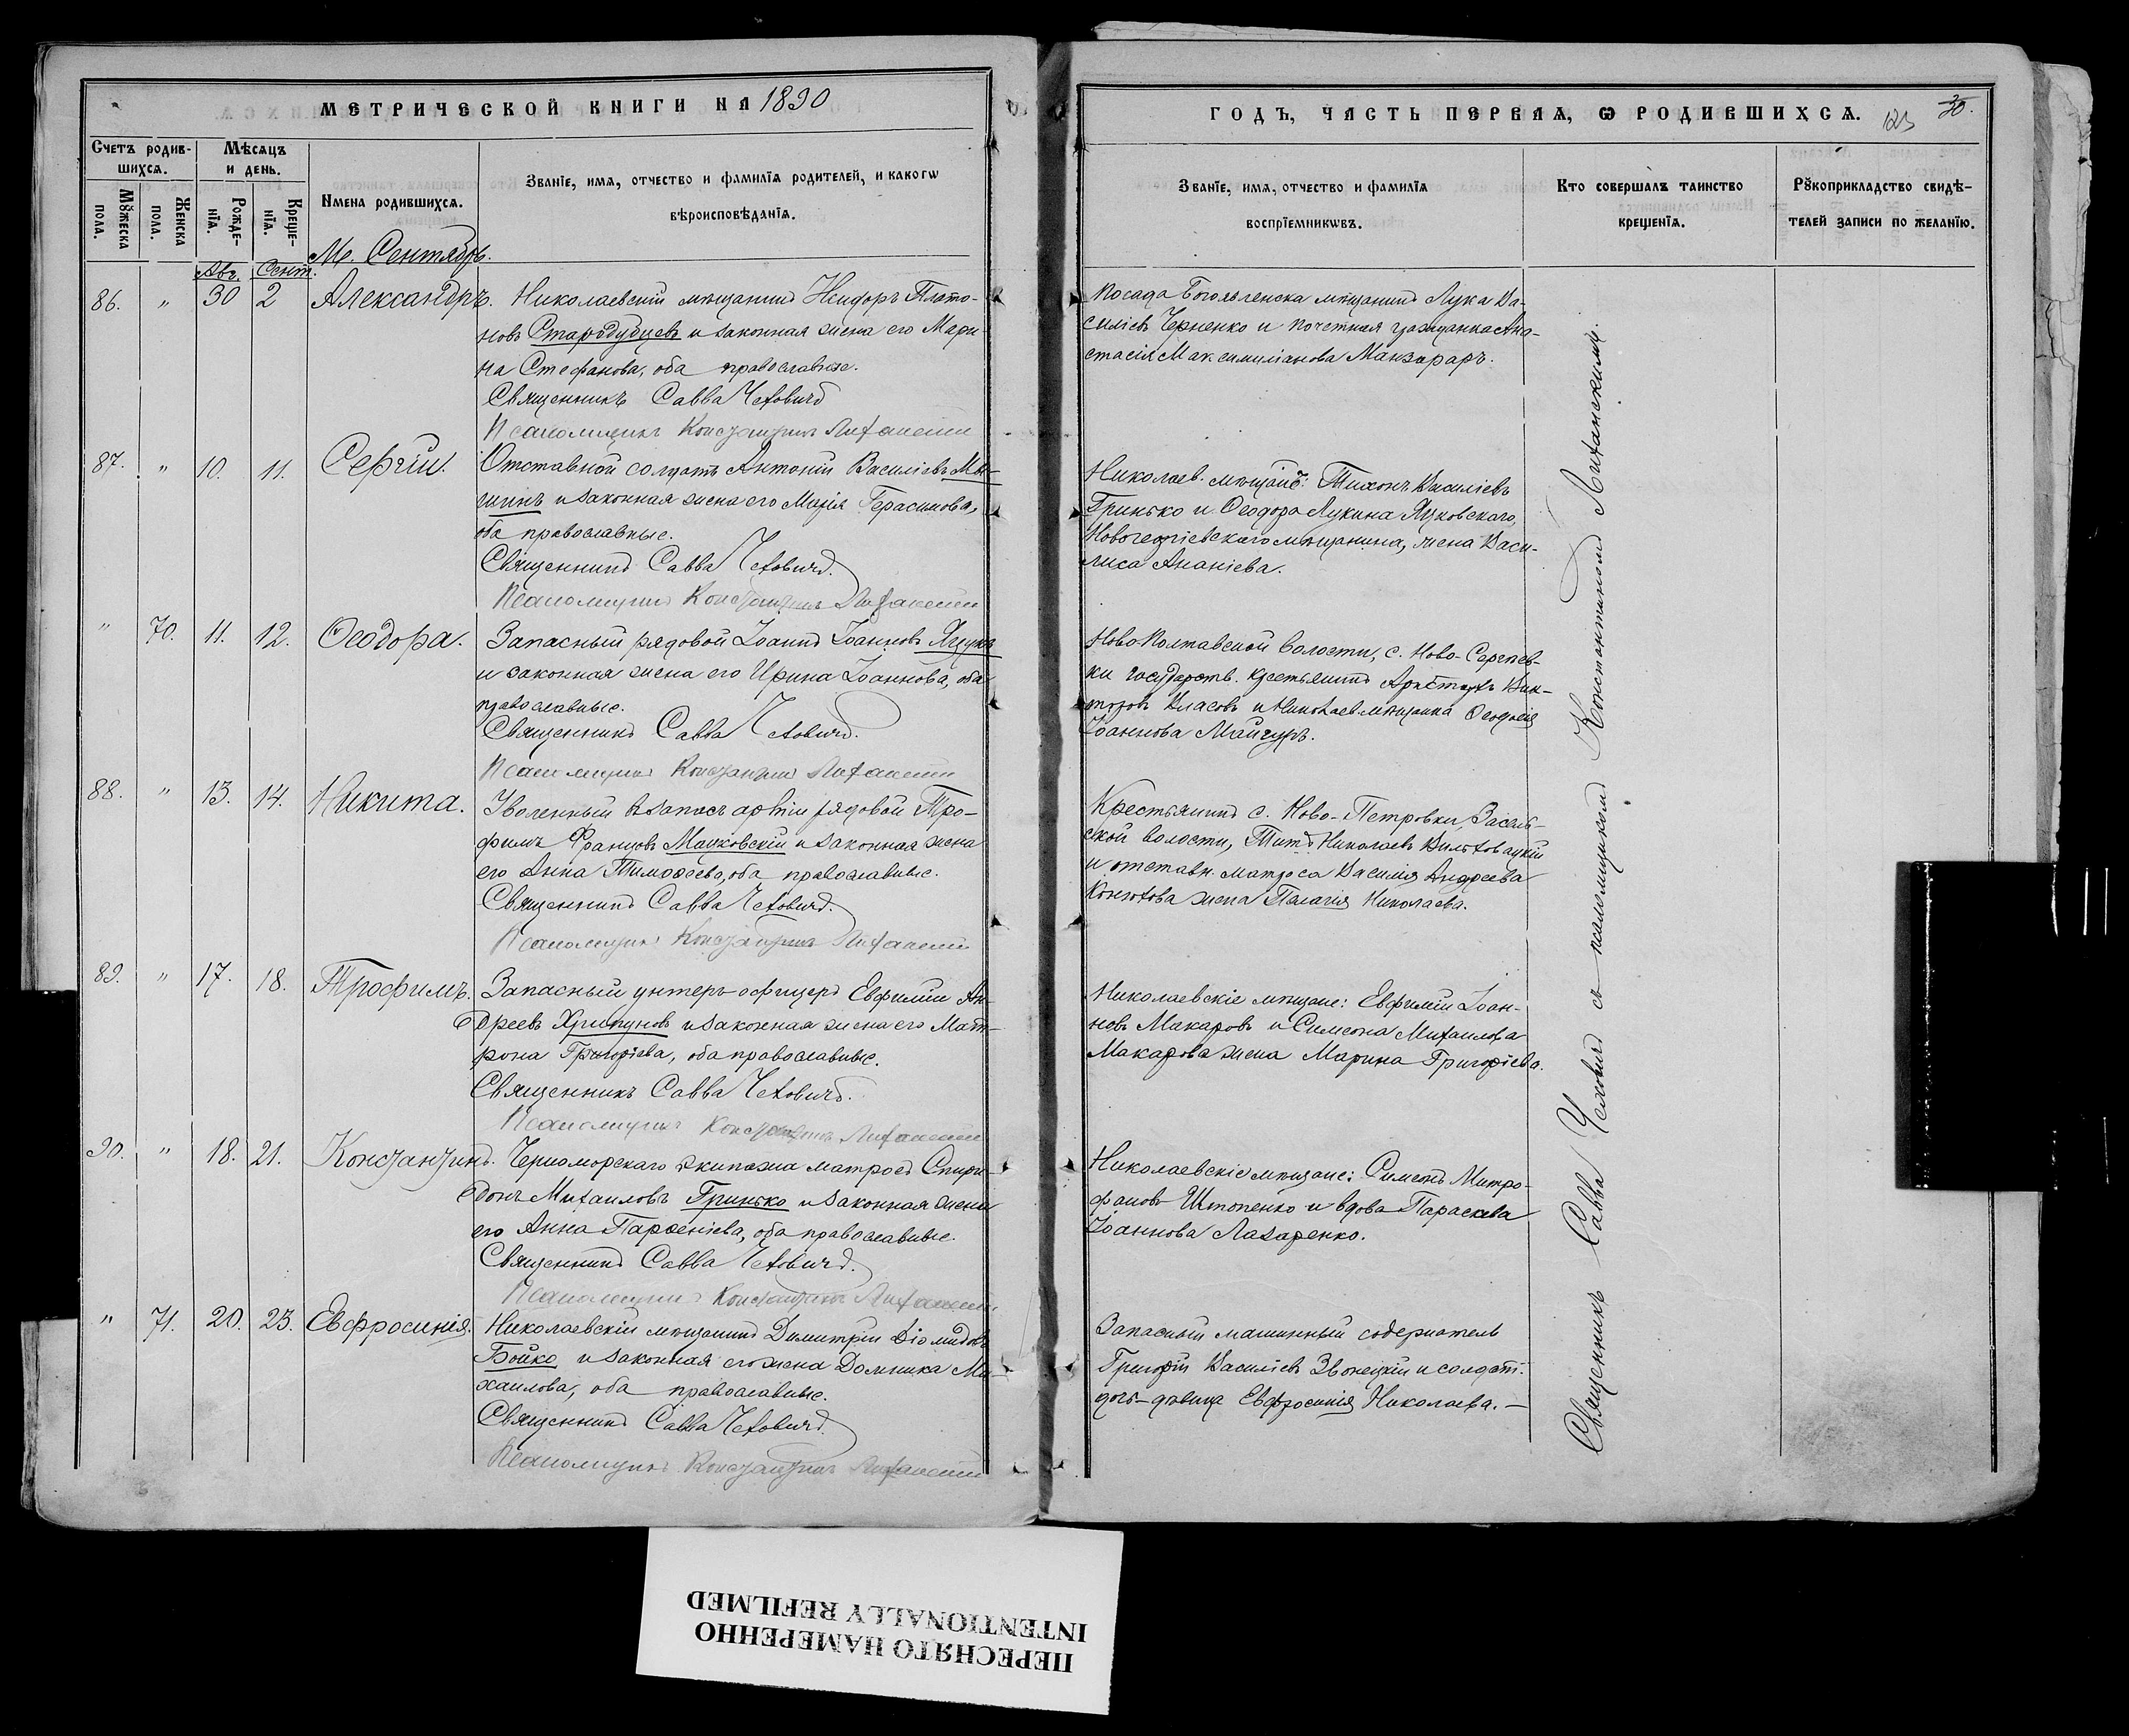 МЕТРИЧЕСКОЙ КНИГИ НА 1890
Счетъ родившихся.
Мѣсяцъ и день.
Имена родившихся.
Званіе, имя, отчество и фамилія родителей, и какогѡ вѣроисповѣданія.
Мꙋжеска пола.
Женска пола.
Рожденія.
Крещенія.
М. Сентябрь.
Авг. Сент.
86. " 30 2 Александръ. Николаевскій мѣщанинъ Исидоръ Плато-
новъ Стародубцевъ и законная жена его Мари-
на Стефанова, оба православные.
Священникъ Савва Чехович
Псаломщикъ Константинъ Лихански
87. " 10. 11. Сергій. Отставной солдатъ Антоній Василіевъ
и законная жена его Марія Герасимова,
оба православные.
Священникъ Савва Чеховичъ.
Псаломщикъ Константинъ
" 70. 11. 12. Ѳеодора. Запасный рядовой Іоаннъ Іоанновъ Яцукъ
и законная жена его Ирина Іоаннова, оба
православные.
Священникъ Савва Чеховичъ.
Псаломщикъ Константинъ
88. " 13. 14. Никита. Уволенный въ запасъ арміи рядовой Тро-
фимъ Францовъ Мацковскій и законная жена
его Анна Тимоѳеева, оба православные.
Священникъ Савва Чеховичъ.
Псаломщикъ Константинъ
89. " 17. 18. Трофимъ. Запасный унтеръ-офицеръ Евфимій Ан-
дреевъ Хрипуновъ и законная жена его Мат-
рона Григоріева, оба православные.
Священникъ Савва Чеховичъ.
Псаломщикъ Константинъ
90. " 18. 21. Константинъ. Черноморскаго экипажа матросъ Спири-
донъ Михаиловъ Гринько и законная жена
его Анна Парѳеніева, оба православные.
Священникъ Савва Чеховичъ.
Псаломщикъ Константинъ
" 71. 20. 23. Евфросинія. Николаевскій мѣщанинъ Димитрій Діомидовъ
Бойко и законная его жена Домника Ми-
хаилова, оба православные.
Священникъ Савва Чеховичъ.
Псаломщикъ Константинъ
ГОДЪ, ЧАСТЬ ПЕРВАЯ, Ѡ РОДИВШИХСЯ.
123 30.
Званіе, имя, отчество и фамилія воспріемникѡвъ.
Кто совершалъ таинство крещенія.
Рꙋкоприкладство свидѣтелей записи по желанію.
Посада Богоявленска мѣщанинъ Лука Ва-
силіевъ Черненко и почетная гражданка Ана-
стасія Максимиліанова Манзараръ.
Николаев. мѣщане: Тихонъ Василіевъ
Гринько и Ѳеодора Лукина Яцковскаго,
Новогеоргіевскаго мѣщанина, жена Васи-
лиса Ананіева.
Ново-Полтавской волости, с. Ново-Сергіев-
ки государств. крестьянинъ Аристархъ Вик-
торовъ Власовъ и Николаев. мѣщанка Ѳеодосія
Іоаннова Майгуръ.
Крестьянинъ с. Ново-Петровки, Засель-
ской волости, Титъ Николаевъ
и отставн. матроса Василія Андреева
Конюхова жена Пелагія Николаева.
Николаевскіе мѣщане: Евфимій Іоан-
новъ Макаровъ и Симеона Михаилова
Макарова жена Марина Григоріева.
Николаевскіе мѣщане: Симеонъ Митро-
фановъ Штопенко и вдова Параскева
Іоаннова Лазаренко.
Запасный машинный содержатель
Григорій Василіевъ Звонецкій и солдат.
дочь-дѣвица Евфросинія Николаева.—
Священникъ Савва Чеховичъ съ псаломщикомъ Константиномъ Лиханскимъ.
ПЕРЕСНЯТО НАМЕРЕННО
INTENTIONALLY REFILMED